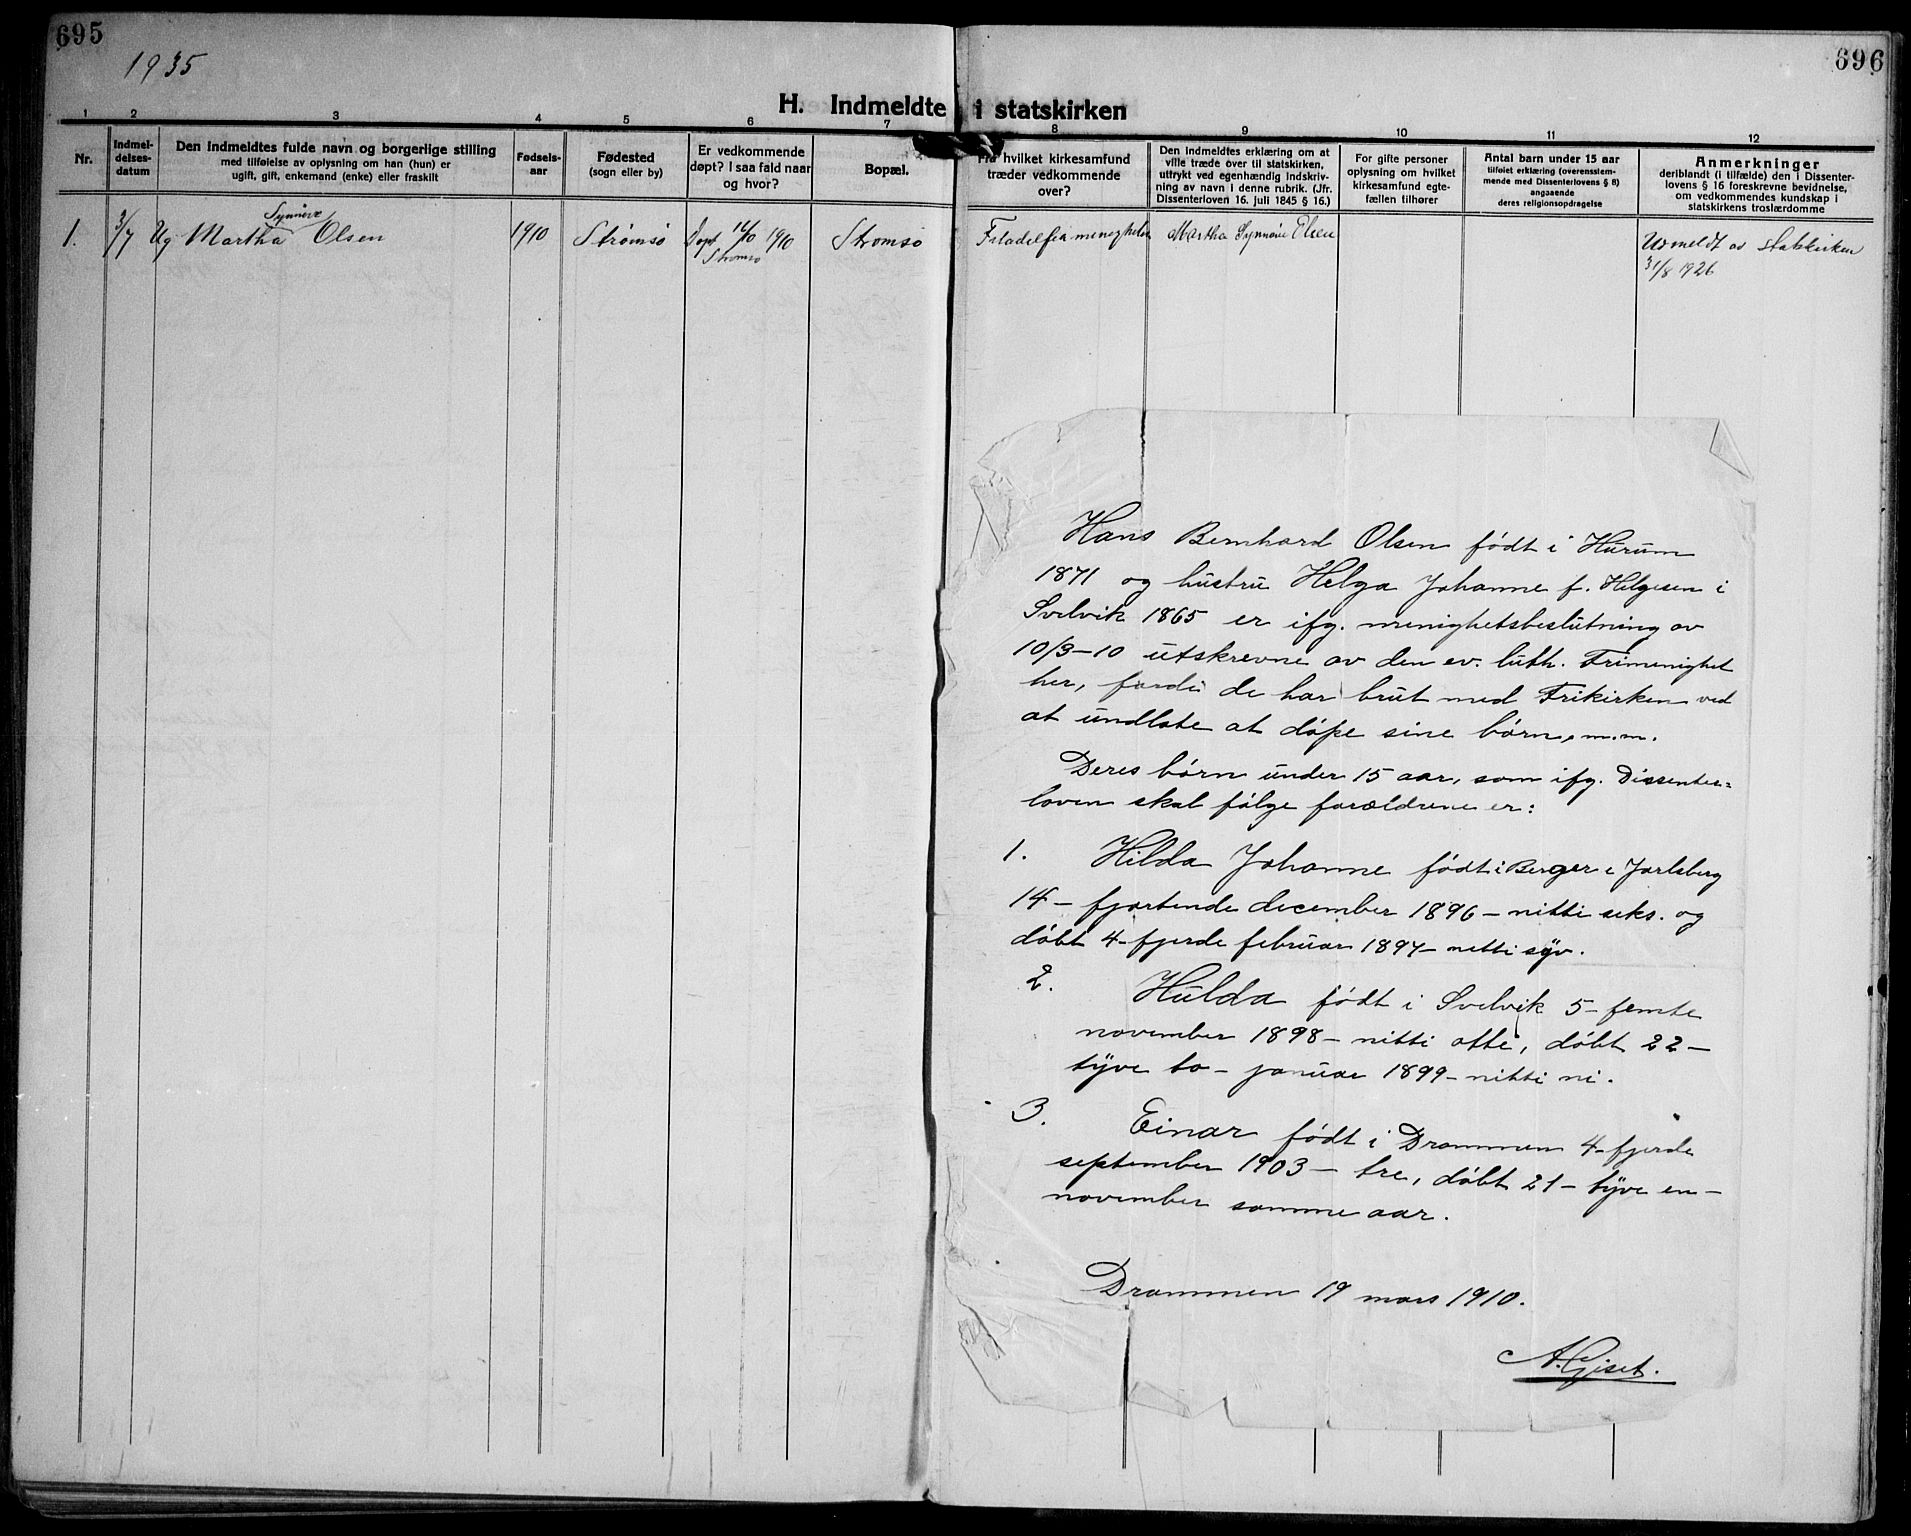 695
696
1935
H. Indmeldte i statskirken
1 2 3 4 5 6 7 8 9 10 11 12
Nr.
Indmel-
delses-
datum
Den indmeldtes fulde navn og borgerlige stilling
med tilføielse av oplysning om han (hun) er
ugift, gift, enkemand (enke) eller fraskilt
Fødsels-
aar
Fødested
(sogn eller by)
Er vedkommende
døpt? I saa fald naar
og hvor?
Bopæl.
Fra hvilket kirkesamfund
træder vedkommende
over?
Den indmeldtes erklæring om at
ville træde over til statskirken,
uttrykt ved egenhændig indskriv-
ning av navn i denne rubrik. (Jfr.
Dissenterloven 16. juli 1845 § 16.)
For gifte personer
oplysning om hvilket
kirkesamfund egte-
fællen tilhører
Antal barn under 15 aar
tilføiet erklæring (overensstem-
mende med Dissenterlovens § 8)
angaaende
deres religionsopdragelse
Anmerkninger
deriblandt (i tilfælde) den i Dissenter-
lovens § 16 foreskrevne bevidnelse,
om vedkommendes kundskap i
statskirkens troslærdomme
1. 3/7 Ug Martha Synnøve Olsen 1910 Strømsø Døpt 16/10 1910 Strømsø Strømsø Filadelfia menigheten Martha Synnøve Olsen
Utmeldt av Statskirken
31/8 1926
Hans Bernhard Olsen født i Hurum
1871 og hustru Helga Johanne f. Helgesen i
Svelvik 1865 er ifg. menighetsbeslutning av
10/3-10 utskrevne av den ev. luth. Frimenighet
her, fordi de har brut med Frikirken ved
at undlate at døpe sine børn, m.m.
Deres børn under 15 aar, som ifg. Dissenter=
loven skal følge forældrene er:
1. Hilda Johanne født i Berger i Jarlsberg
14- fjortende december 1896- nitti seks. og
døbt 4- fjerde februar 1897- nitti syv.
2. Hulda født i Svelvik 5- femte
november 1898- nitti otte, døbt 22-
tyve to- januar 1899- nitti ni.
3. Einar født i Drammen 4- fjerde
september 1903- tre, døbt 21- tyve en-
november samme aar.
Drammen 19 mars 1910.
A. Gjset.